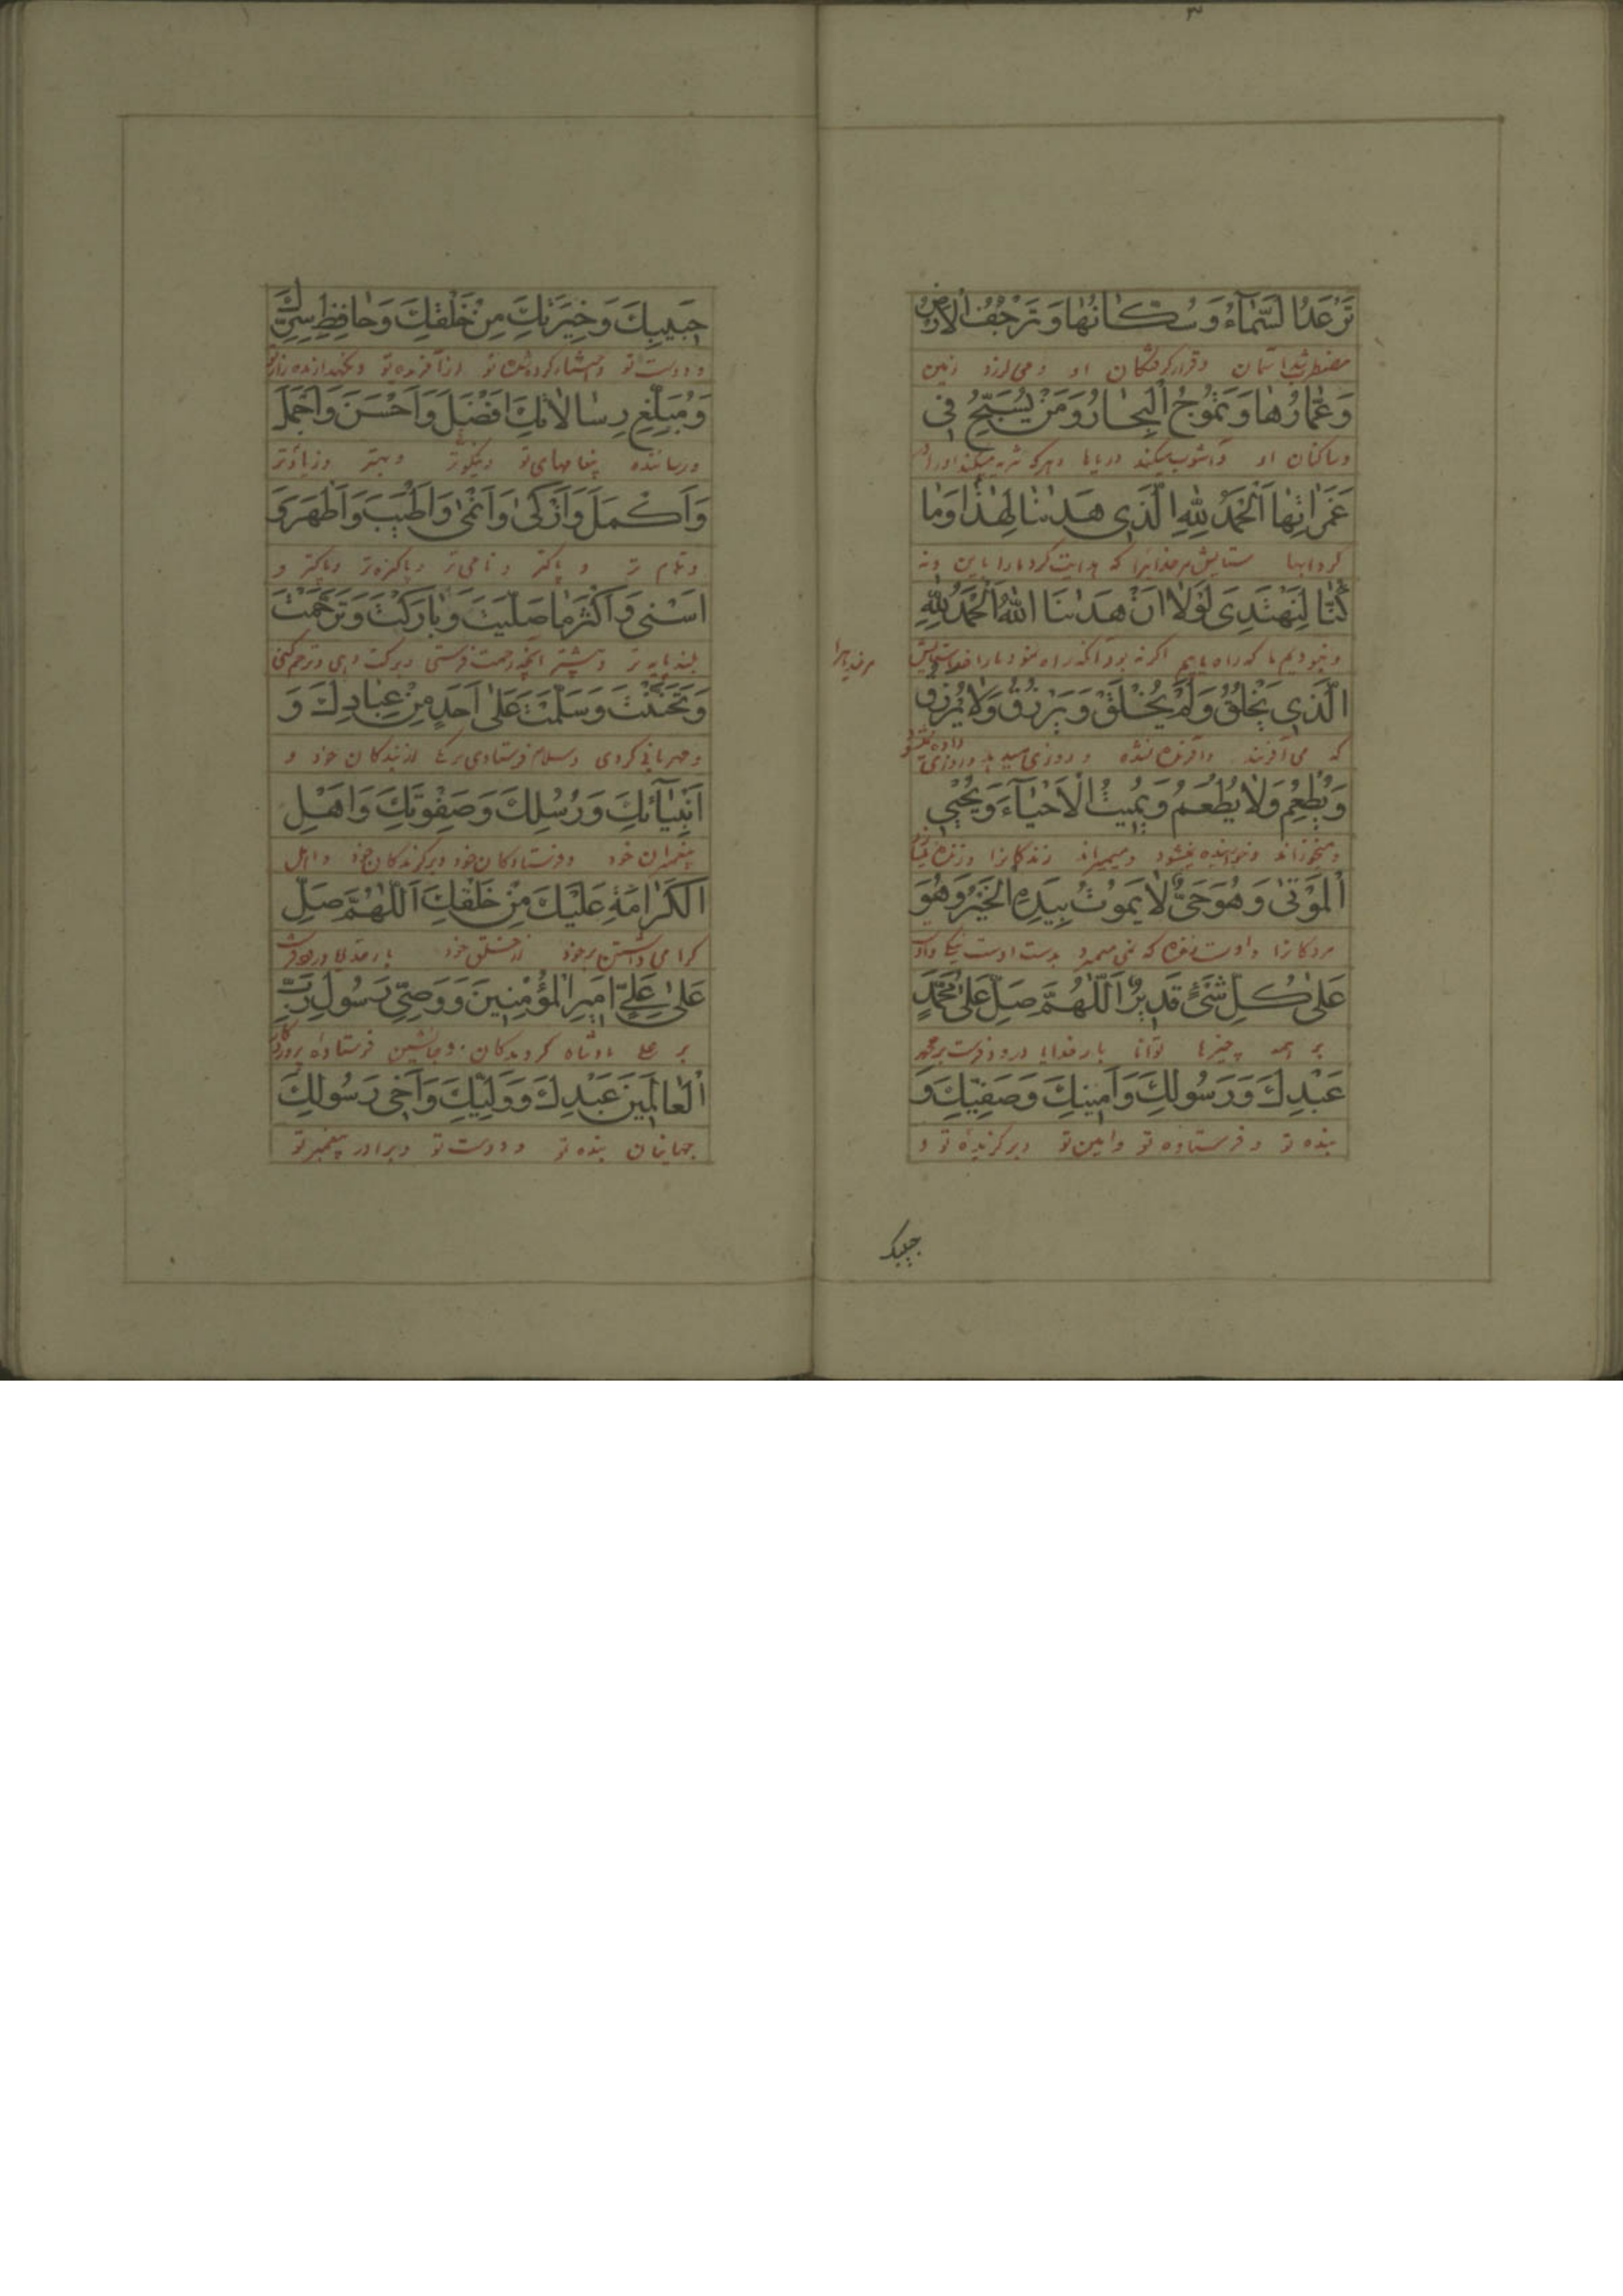 ۳
تَرْعَدُ السَّمَآءُ وَ سُكّٰانُهٰا وَ تَرْجُفُ الْاَرْضُ
مضطرب شد آسمان وقرارگرفتگان او ومی لرزد زمین
وَ عُمّٰارُهٰا وَ تَمُوجُ الْبِحٰارُ وَ مَنْ يُسَبِّحُ فى
وساکنان او وآشوب میکند دریاها وهرکه
غَمَرٰاتِهٰا اَلْحَمْدُ لِلّٰهِ الَّذى هَدٰىنٰا لِهٰذٰا وَمٰا
گردابها ستایش مر خدایرا که هدایت کرد مارا باین ونه
كُنّٰا لِنَهْتَدِىَ لَوْلٰا اَنْ هَدٰىنَا اللّٰهُ اَلْحَمْدُ لِلّٰهِ
ونبودیم ما که راه یابیم اگر نه بود آنکه راه نمود مارا خدا ستایش
مر خدایرا
الَّذى يَخْلُقُ وَ لَمْ يُخْلَقْ وَ يَرْزُقُ وَ لٰا يُرْزَقُ
که می آفریند وآفریده نشده و روزی میدهد وروزی داده نمیشود
وَ يُطْعِمُ وَ لٰا يُطْعَمُ وَ يُميتُ الْاَحْيٰآءَ وَ يُحْيِى
ومیخوراند وخورانیده نمیشود ومیمیراند زندگانرا وزنده میکند
الْمَوْتىٰ وَ هُوَ حَىٌّ لٰا يَمُوتُ بِيَدِهِ الْخَيْرُ وَ هُوَ
مردگانرا واوست زنده که نمی میرد بدست اوست نیکی واو
عَلىٰ كُلِّ شَىْءٍ قَديرٌ اَللّٰهُمَّ صَلِّ عَلىٰ مُحَمَّدٍ
بر همه چیزها توانا بار خدایا درود فرست بر محمد
عَبْدِكَ وَ رَسُولِكَ وَ اَمينِكَ وَ صَفِيِّكَ وَ
بنده تو وفرستاده تو وامین تو وبرگزیده تو و
حبیبک
حَبيبِكَ وَ خِيَرَتِكَ مِنْ خَلْقِكَ وَ حٰافِظِ سِرِّكَ
ودوست تو واختیار کرده شده تو از آفریده تو ونگهدارنده راز تو
وَ مُبَلِّغِ رِسٰالٰاتِكَ اَفْضَلَ وَ اَحْسَنَ وَ اَجْمَلَ
ورساننده پیغامهای تو ونیکوتر وبهتر وزیادتر
وَ اَكْمَلَ وَ اَزْكىٰ وَ اَنْمىٰ وَ اَطْيَبَ وَ اَطْهَرَ وَ
وتمام تر و پاکتر ونامی تر وپاکیزه تر وپاکتر و
اَسْنىٰ وَ اَكْثَرَ مٰا صَلَّيْتَ وَ بٰارَكْتَ وَ تَرَحَّمْتَ
بلند پایه تر وبیشتر آنچه رحمت فرستی وبرکت دهی وترحم کنی
وَ تَحَنَّنْتَ وَ سَلَّمْتَ عَلىٰ اَحَدٍ مِنْ عِبٰادِكَ وَ
ومهربانی کردی وسلام فرستادی بر یکی از بندگان خود و
اَنْبِيٰآئِكَ وَ رُسُلِكَ وَ صَفْوَتِكَ وَ اَهْلِ
پیغمبران خود وفرستادگان خود وبرگزیدگان خود واهل
الْكَرٰامَةِ عَلَيْكَ مِنْ خَلْقِكَ اَللّٰهُمَّ صَلِّ
گرامی داشتن بر خود از خلق خود بار خدایا درود فرست
عَلىٰ عَلِىٍّ اَميرِ الْمُؤْمِنينَ وَ وَصِىِّ رَسُولِ رَبِّ
بر علی پادشاه گرویدگان وجانشین فرستاده پروردگار
الْعٰالَمينَ عَبْدِكَ وَ وَلِيِّكَ وَ اَخى رَسُولِكَ
جهانیان بنده تو ودوست تو وبرادر پیغمبر تو